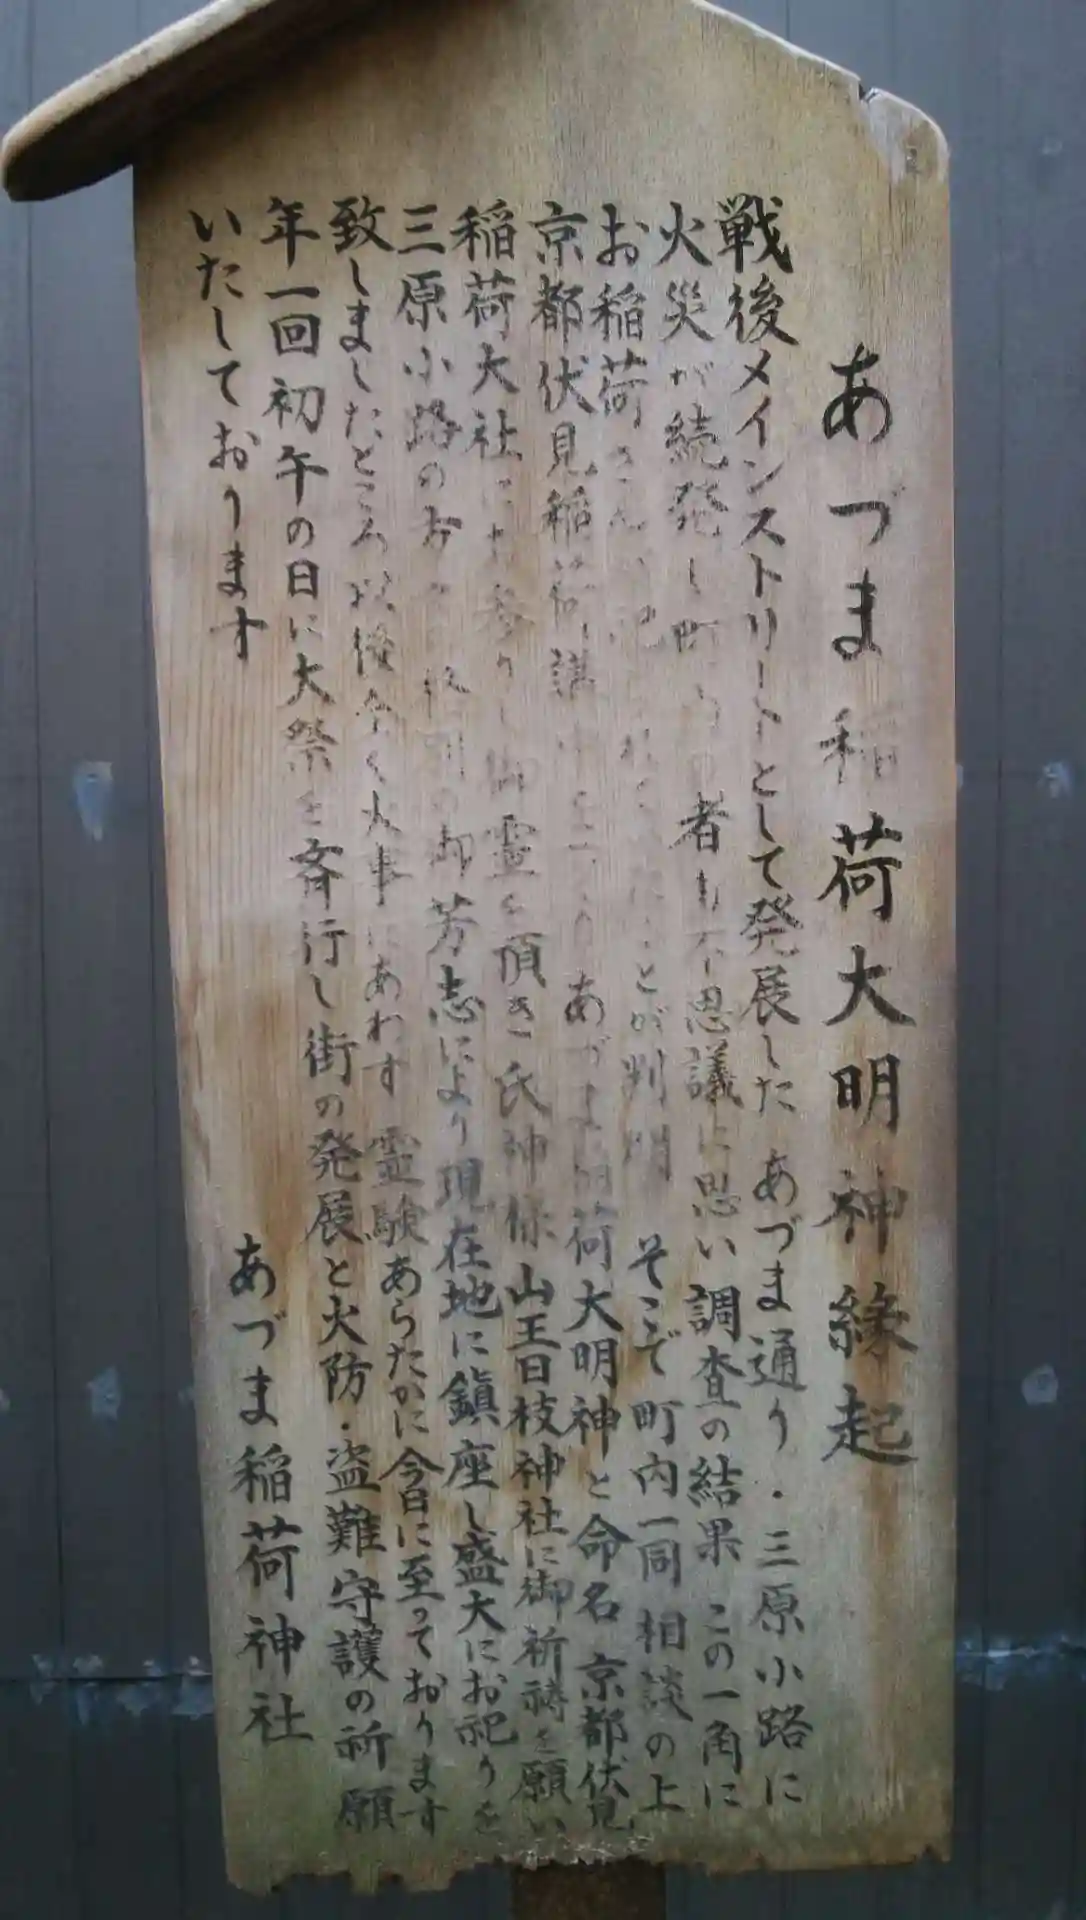 あづま稲荷大明神縁起
戦後メインストリートとして発展した あづま通り・三原小路に
火災が続発し町の者も不思議に思い調査の結果 この一角に
お稲荷さんがれとが判明 そこで町内一同相談の上
京都伏見稲荷講中あづま稲荷大明神と命名 京都伏見
稲荷大社にお参りし御霊を頂き氏神様 山王日枝神社に御祈祷を願い
三原小路の方の御芳志により現在地に鎮座し盛大にお祀りを
致しましたところ以後全く火事にあわず 霊験あらたかに今日に至っております
年一回初午の日に大祭を斉行し街の発展と火防・盗難守護の祈願
いたしております
あづま稲荷神社